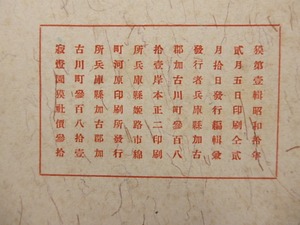 第壹輯昭和拾年
貳月五日印刷仝貳
月拾日發行編輯兼
發行者兵庫縣加古
郡加古川町參百八
拾壹岸本正二印刷
所兵庫縣姫路市綿
町河原印刷所發行
所兵庫縣加古郡加
古川町參百八拾壹
社價參拾